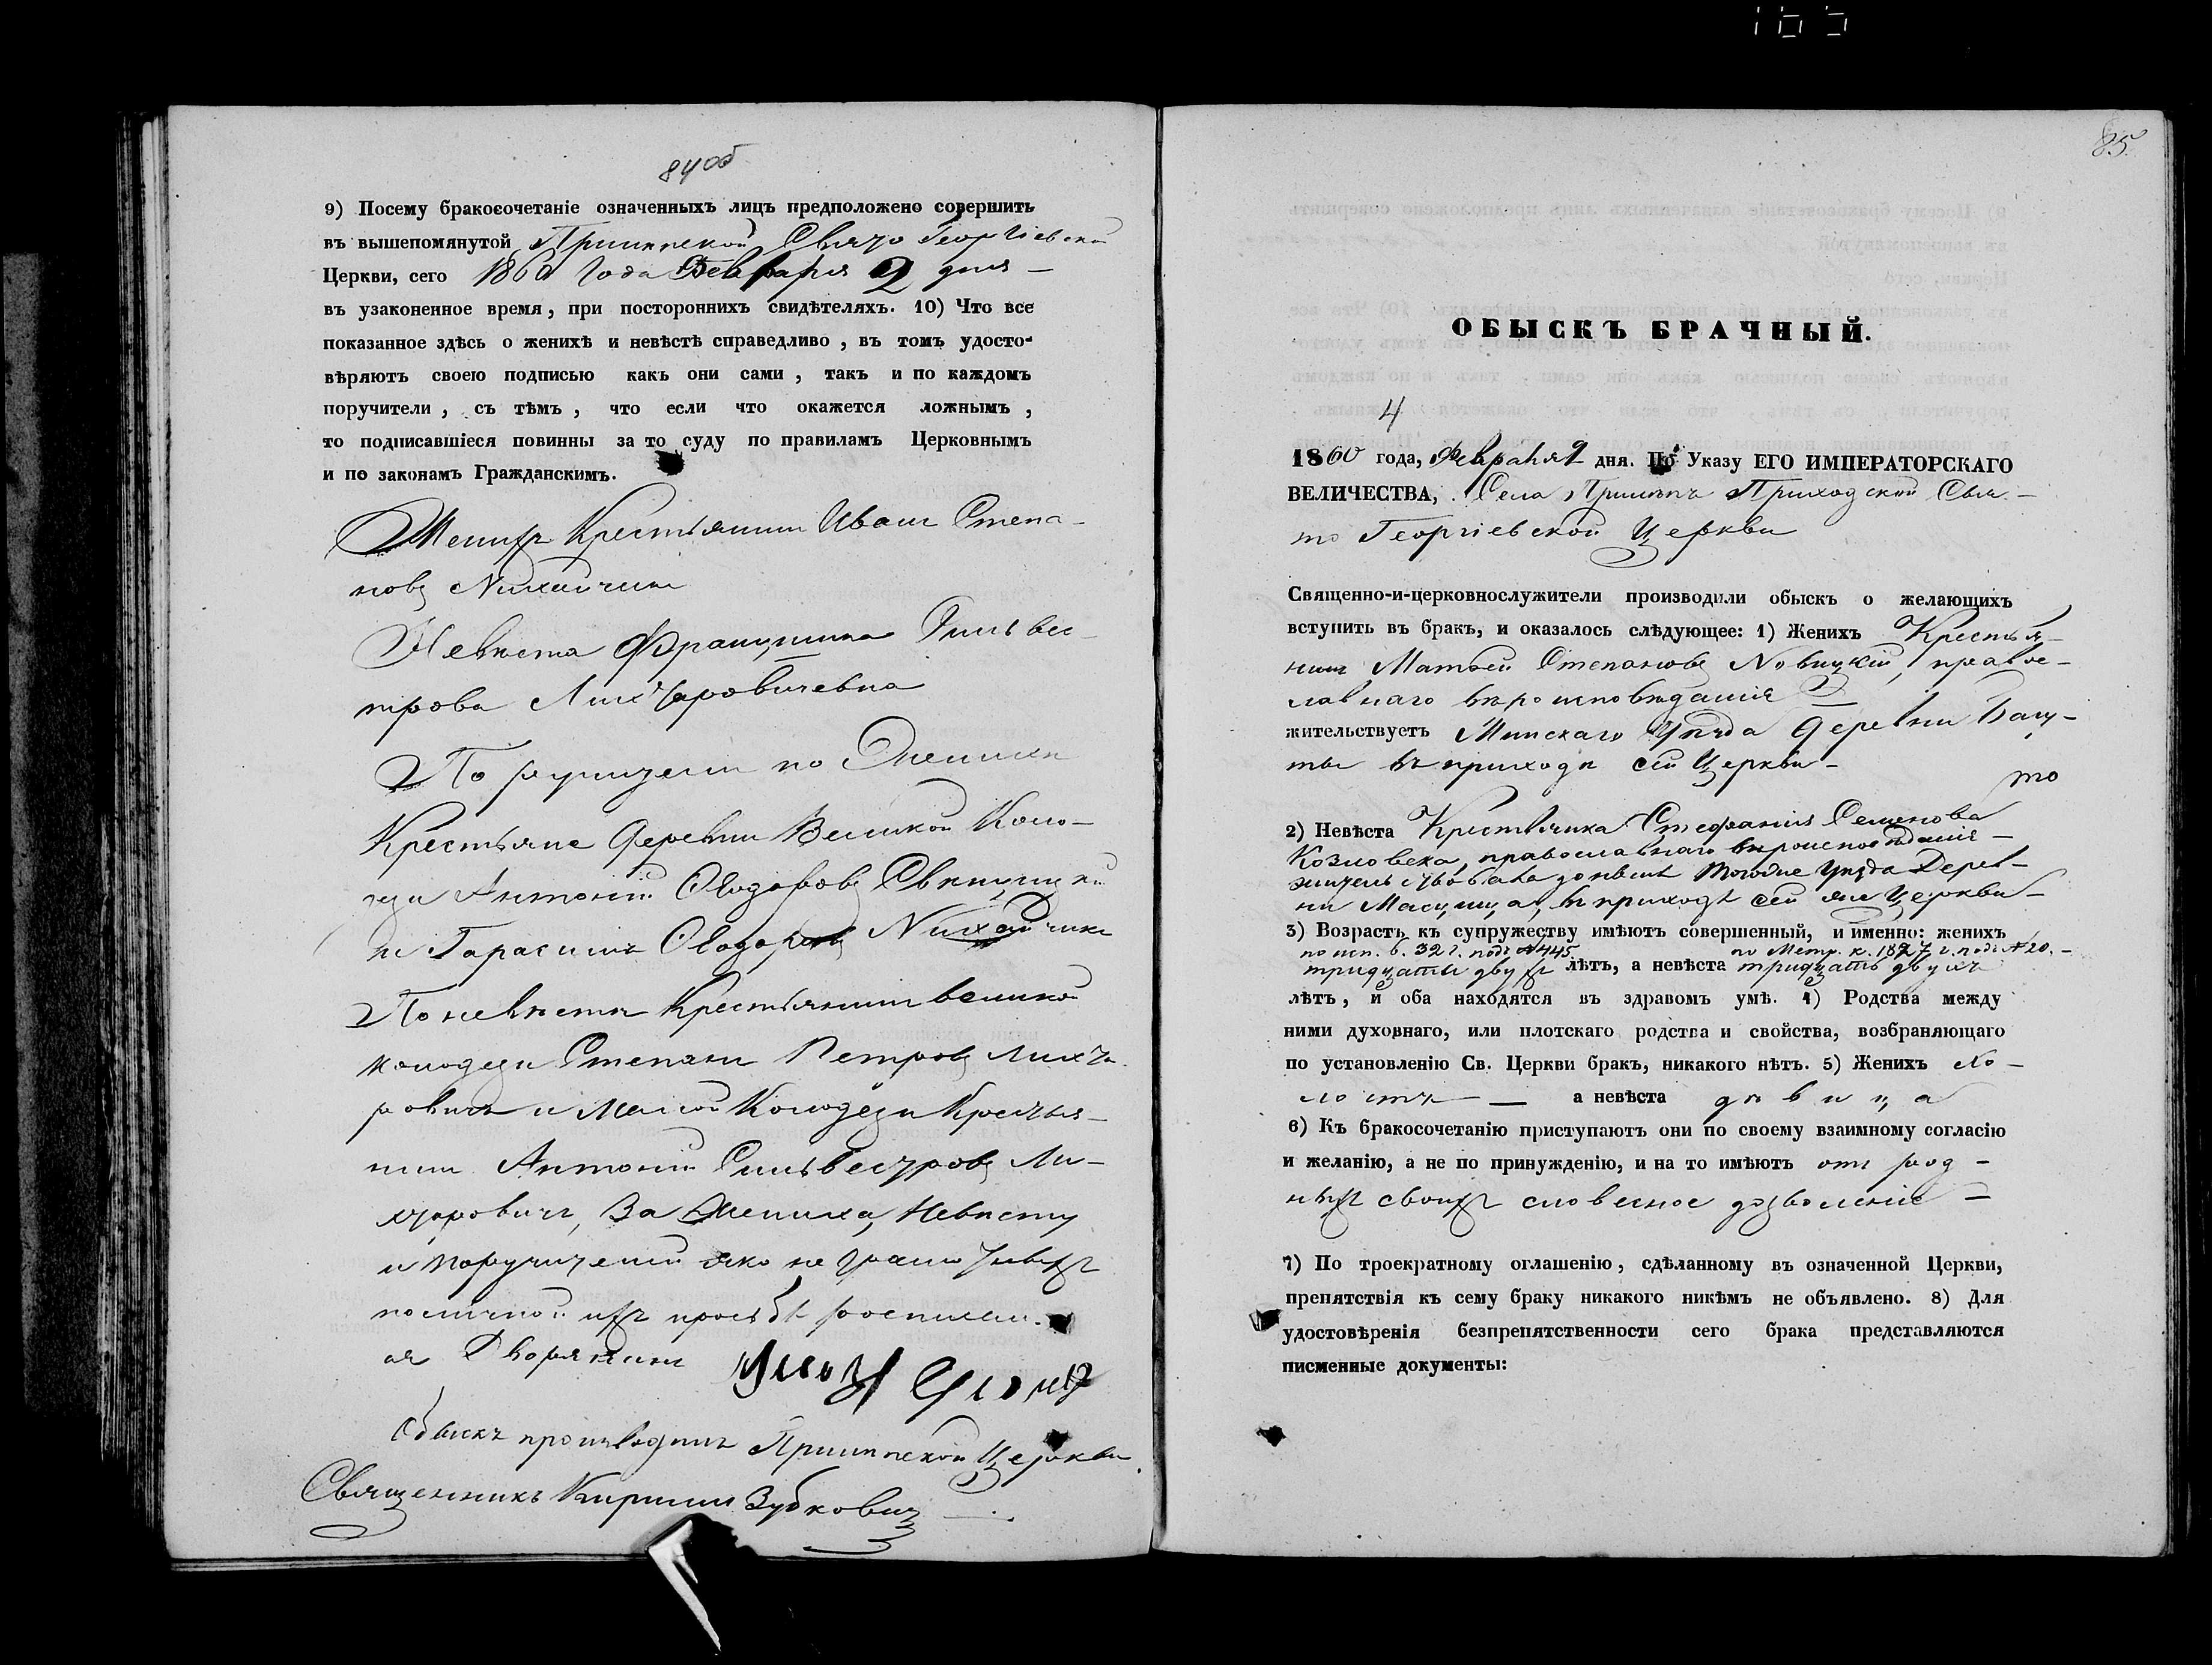 84 об
9) Посему бракосочетаніе означенныхъ лицъ предположено совершить
въ вышепомянутой Прилѣпской Свято Георгіевской
Церкви, сего 1860 Года Февраля 2 дня —
въ узаконенное время, при постороннихъ свидѣтеляхъ. 10) Что все
показанное здѣсь о женихѣ и невѣстѣ справедливо, въ томъ удосто-
вѣряютъ своею подписью какъ они сами, такъ и по каждомъ
поручители, съ тѣмъ, что если что окажется ложнымъ,
то подписавшіеся повинны за то суду по правиламъ Церковнымъ
и по законамъ Гражданскимъ.
Женихъ Крестьянинъ Иванъ Степа-
новъ Михайчикъ
Невѣста Францишка Сильвес-
трова Лихтаровичевна
Поручители по Женихѣ
Крестьяне Деревни Великой Коло-
дези Антоній Ѳеодоровъ
и Гарасимъ Ѳеодоровъ Михайчикъ
По невѣстѣ Крестьянинъ великой
колодези Степанъ Петровъ Лихта-
ровичъ и Малой Колодези Крестья-
нинъ Антоній Сильвестровъ Ли-
хтаровичъ, За Жениха, Невѣсту
и поручителей яко не грамотныхъ
по личной ихъ прозьбѣ росписал-
ся Дворянинъ
Обыскъ производилъ Прилѣпской Церкви
Священникъ Кириллъ Зубковичъ
85.
ОБЫСКЪ БРАЧНЫЙ.
4
1860 года, Февраля 2 дня. По Указу ЕГО ИМПЕРАТОРСКАГО
ВЕЛИЧЕСТВА, Села Прилѣпъ Приходской Свя-
то Георгіевской Церкви
Священно-и-церковнослужители производили обыскъ о желающихъ
вступить въ бракъ, и оказалось слѣдующее: 1) Женихъ Крестья-
нинъ Матвей Степановъ Новицкій, право-
славнаго вѣроисповѣданія
жительствуетъ Минскаго Уѣзда Деревни Балу-
ты въ приходѣ сей Церкви —
то
2) Невѣста Крестьянка Стефанія Семенова
Козловска, православнаго вѣроисповѣданія —
жительствовала донынѣ Тогоже Уѣзда Дерев-
ни въ приходѣ сей же Церкви —
3) Возрастъ къ супружеству имѣютъ совершенный, и именно: женихъ
по исп. в. 32 г. подъ №445 по Метр. к. 1827 г. подъ №20. —
тридцати двухъ лѣтъ, а невѣста тридцать двухъ
лѣтъ, и оба находятся въ здравомъ умѣ. 4) Родства между
ними духовнаго, или плотскаго родства и свойства, возбраняющаго
по установленію Св. Церкви бракъ, никакого нѣтъ. 5) Женихъ хо-
лостъ — а невѣста дѣвица
6) Къ бракосочетанію приступаютъ они по своему взаимному согласію
и желанію, а не по принужденію, и на то имѣютъ отъ род-
ныхъ своихъ словесное дозволеніе —
7) По троекратному оглашенію, сдѣланному въ означенной Церкви,
препятствія къ сему браку никакого никѣмъ не объявлено. 8) Для
удостовѣренія безпрепятственности сего брака представляются
писменные документы: